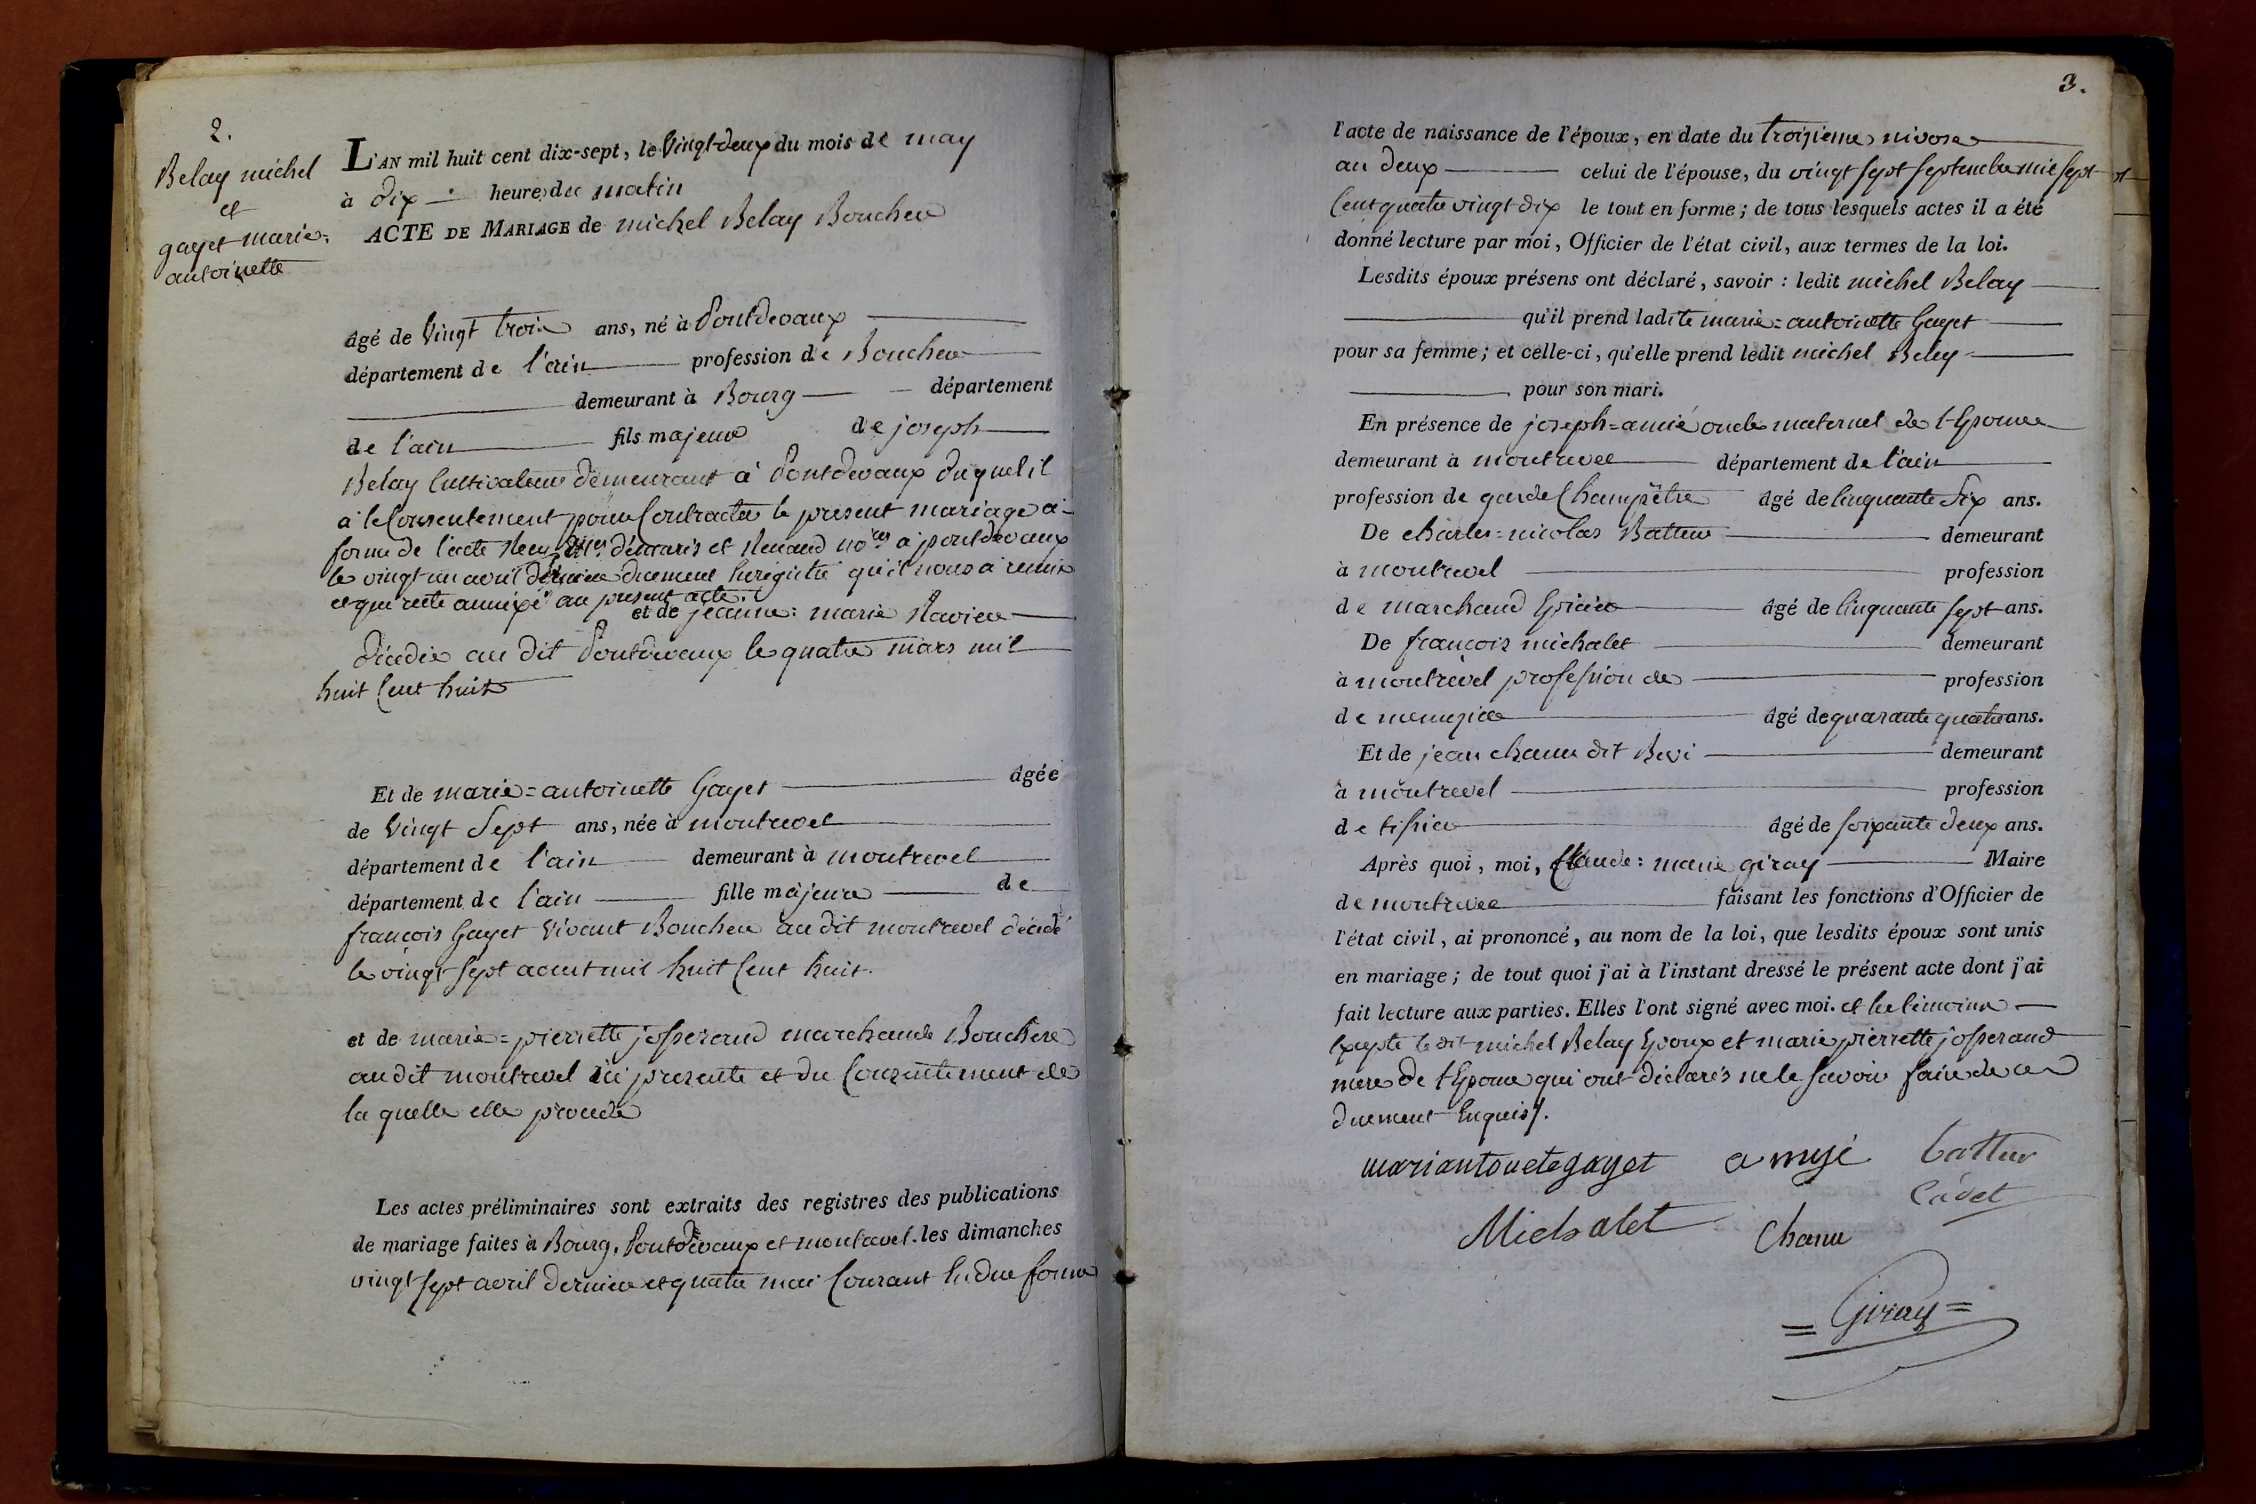 2.
Belay michel
et
gayet marie=
antoinette
L'AN mil huit cent dix-sept, le vingt-deux du mois de may
à dix heures du matin
ACTE DE MARIAGE de michel Belay Boucher
âgé de vingt trois ans, né à Pontdevaux
département de l'ain profession de Boucher
demeurant à Bourg département
de l'ain fils majeur de joseph
Belay Cultivateur demeurant à Pontdevaux duquel il
a le Consentement pour Contracter le present mariage a
forme de l'acte Recu démaris et Renaud no.res a pontdevaux
le vingt un avril dernier duement Enregistré qu'il nous a remis
et qui reste annéxé au present acte.
et de jeanne: marie Ravier
décédée au dit Pontdevaux le quatre mars mil
huit Cent huit
Et de marie=antoinette Gayet âgée
de vingt Sept ans, née à montrevel
département de l'ain demeurant à montrevel
département de l'ain fille majeure de
francois Gayet vivant Boucher au dit montrevel décédé
le vingt sept aout mil huit Cent huit.
et de marie=pierrette josserand marchande Bouchere
au dit montrevel ici presente et du Consentement de
la quelle elle procede
Les actes préliminaires sont extraits des registres des publications
de mariage faites à Bourg, Pontdevaux et montrevel. les dimanches
vingt sept avril dernier et quatre mai Courant En due forme
3.
l'acte de naissance de l'époux, en date du troisieme nivose
an deux celui de l'épouse, du vingt sept septembre mil sept
Cent quatre vingt dix le tout en forme; de tous lesquels actes il a été
donné lecture par moi, Officier de l'état civil, aux termes de la loi.
Lesdits époux présens ont déclaré, savoir : ledit michel Belay
qu'il prend ladite marie=antoinette Gayet
pour sa femme; et celle-ci, qu'elle prend ledit michel Belay
pour son mari.
En présence de joseph=amié oncle maternel de l'Epouse
demeurant à montrevel département de l'ain
profession de garde Champêtre âgé de Cinquante Six ans.
De charles=nicolas Batteur demeurant
à montrevel profession
de marchand Epicier âgé de Cinquante sept ans.
De francois michalet demeurant
à montrevel profession de profession
de menuzier âgé de quarante quatre ans.
Et de jean chanu dit Bevi demeurant
à montrevel profession
de tissier âgé de soixante deux ans.
Après quoi, moi, Claude: marie giray Maire
de montrevel faisant les fonctions d'Officier de
l'état civil, ai prononcé, au nom de la loi, que lesdits époux sont unis
en mariage; de tout quoi j'ai à l'instant dressé le présent acte dont j'ai
fait lecture aux parties. Elles l'ont signé avec moi. et les temoins
Excepté le dit michel Belay Epoux et marie pierrette josserand
mere de l'Epouse qui ont déclarés ne le savoir faire de ce
duement Enquis.
mariantouetegayet amyé batteur
Cadet
Michalet Chanu
= Giray =